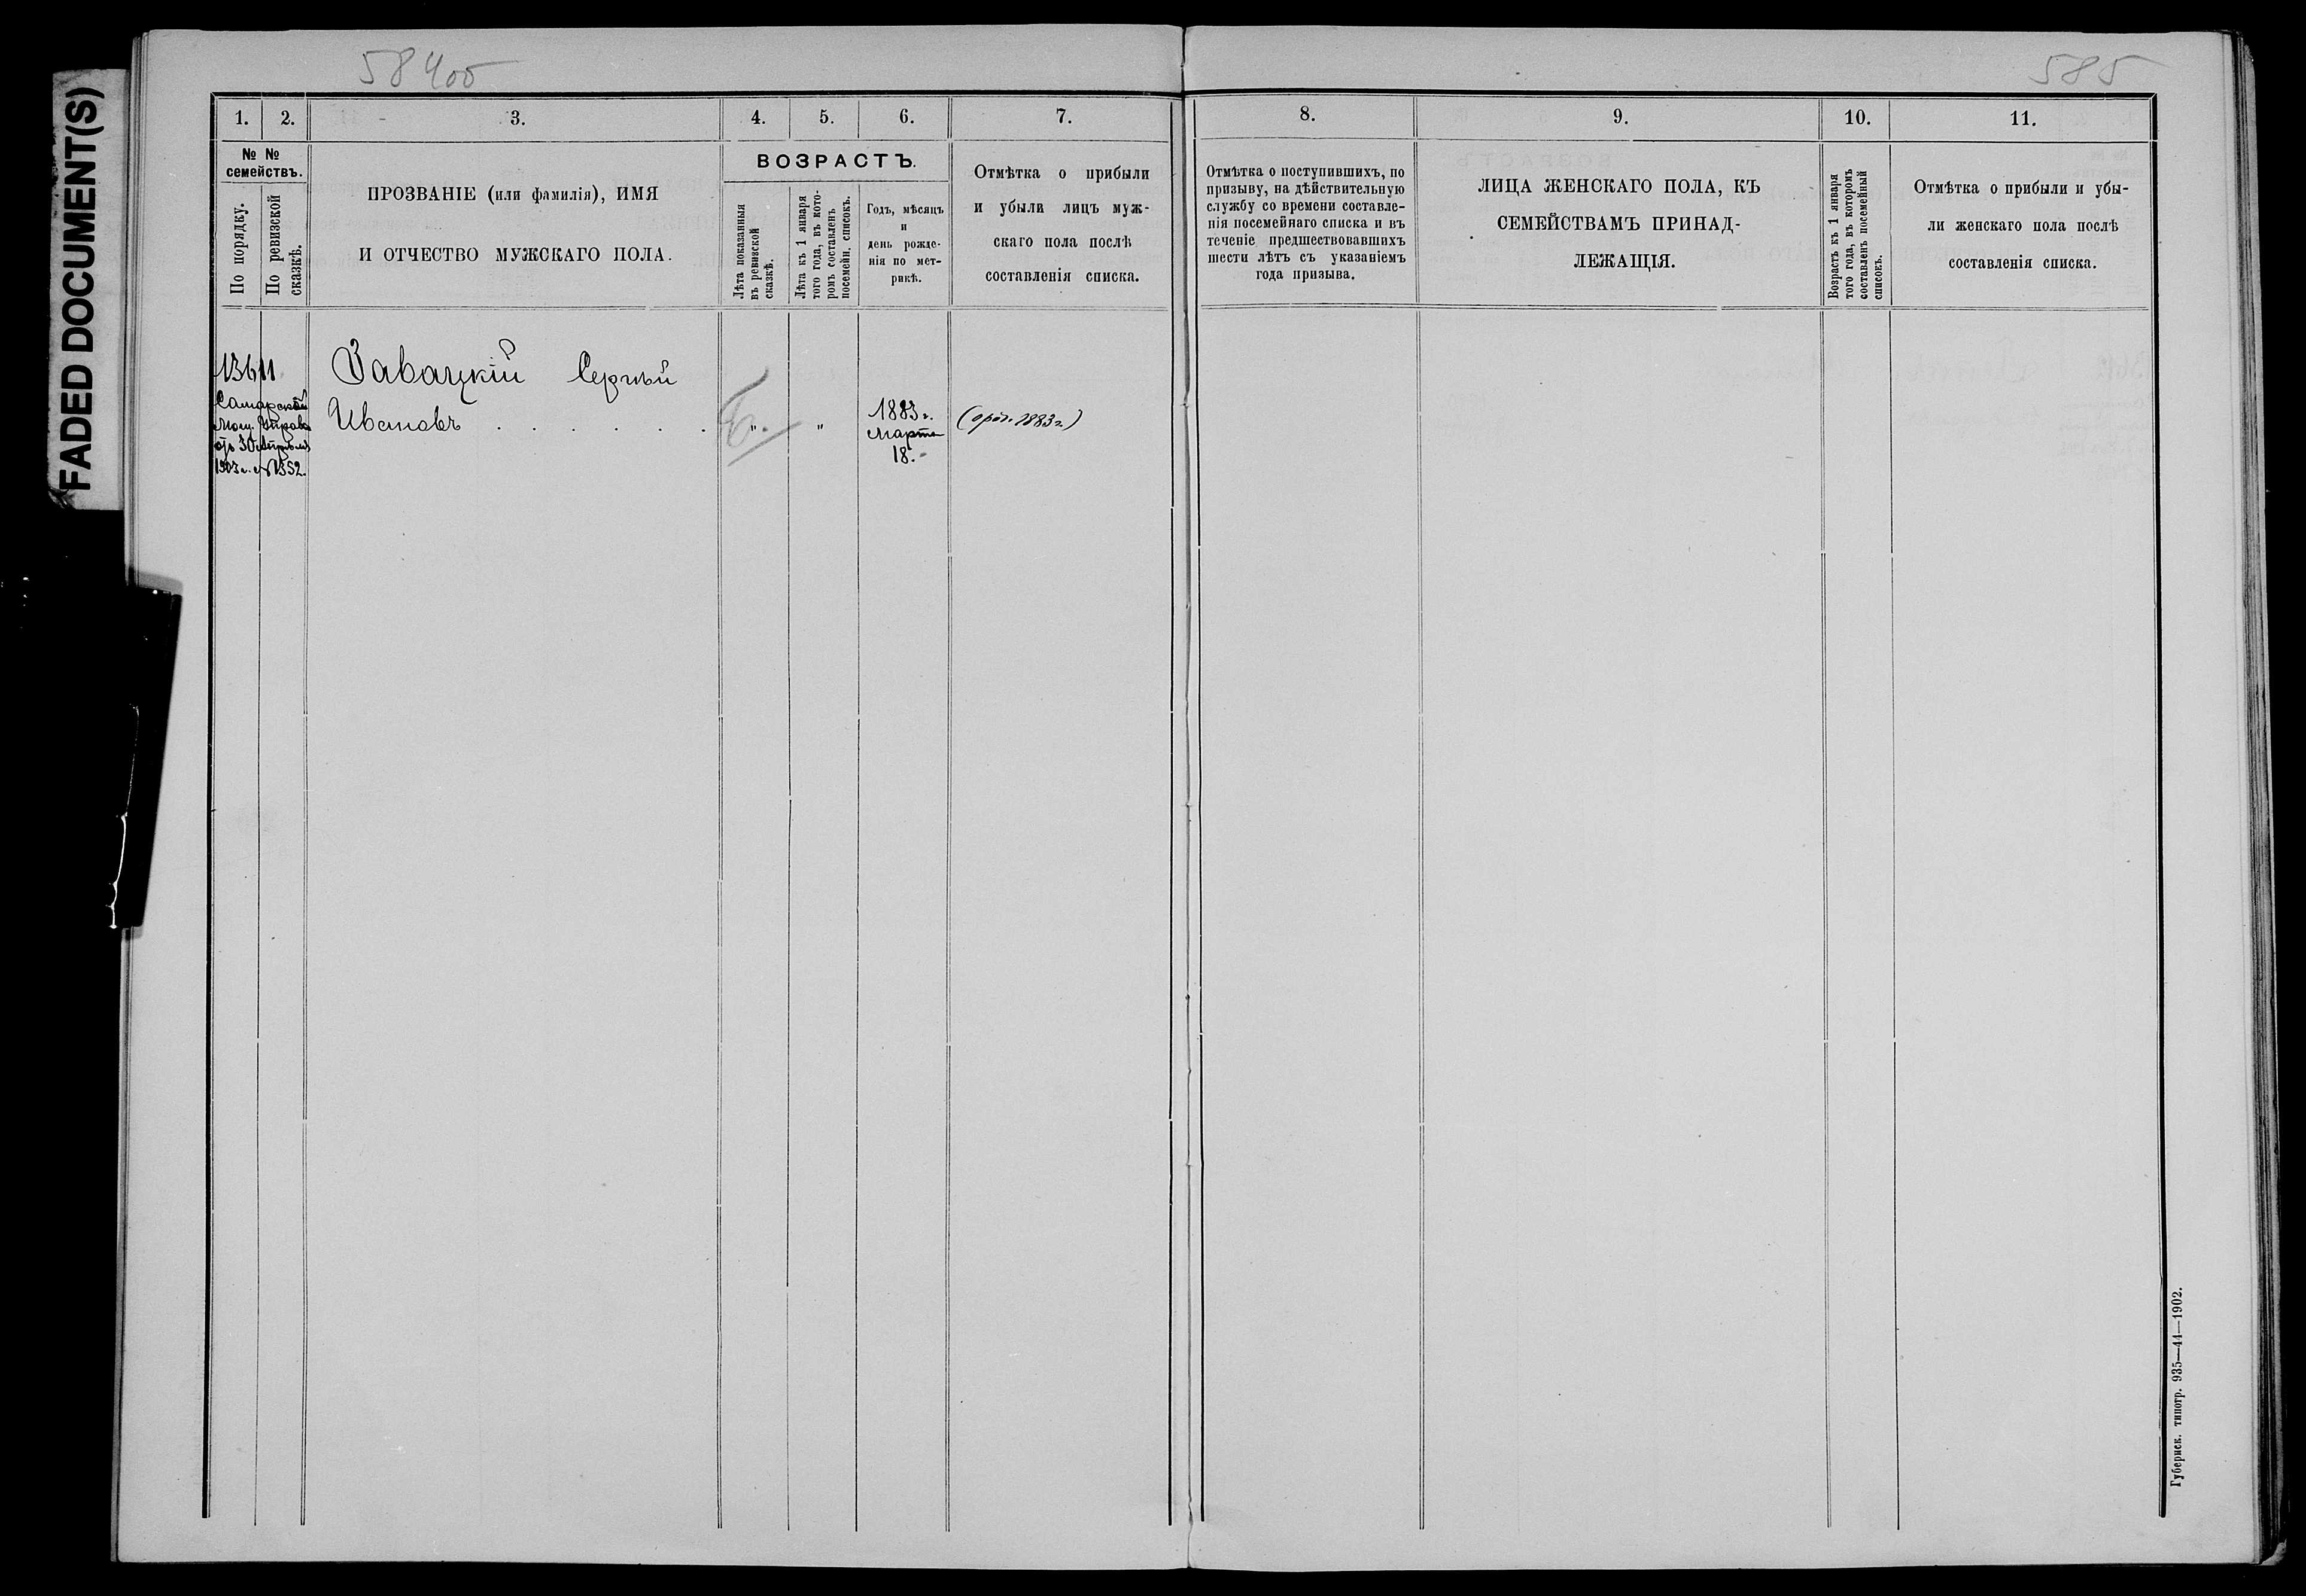 FADED DOCUMENT(S)
584об
585
1.
2.
3.
4.
5.
6.
7.
8.
9.
10.
11.
№ №
семействъ.
По порядку.
По ревизской
сказкѣ.
ПРОЗВАНІЕ (или фамилія), ИМЯ
И ОТЧЕСТВО МУЖСКАГО ПОЛА.
ВОЗРАСТЪ.
Лѣта показанныя
въ ревизской
сказкѣ.
Лѣта къ 1 января
того года, въ кото-
ромъ составленъ
посемейн. списокъ.
Годъ, мѣсяцъ
и
день рожде-
нія по мет-
рикѣ.
Отмѣтка о прибыли
и убыли лицъ муж-
скаго пола послѣ
составленія списка.
Отмѣтка о поступившихъ, по
призыву, на дѣйствительную
службу со времени составле-
нія посемейнаго списка и въ
теченіе предшествовавшихъ
шести лѣтъ съ указаніемъ
года призыва.
ЛИЦА ЖЕНСКАГО ПОЛА, КЪ
СЕМЕЙСТВАМЪ ПРИНАД-
ЛЕЖАЩІЯ.
Возрастъ къ 1 января
того года, въ которомъ
составленъ посемейный
списокъ.
Отмѣтка о прибыли и убы-
ли женскаго пола послѣ
составленія списка.
13611
Самарской
Мѣщ. Управы
отъ 30 Апрѣля
1903 г. № 1352.
Завацкій Сергѣй
Ивановъ . . . . . .
" "
1883 г.
Марта
18.
1883 г.)
Губернск. типогр. 935—44—1902.